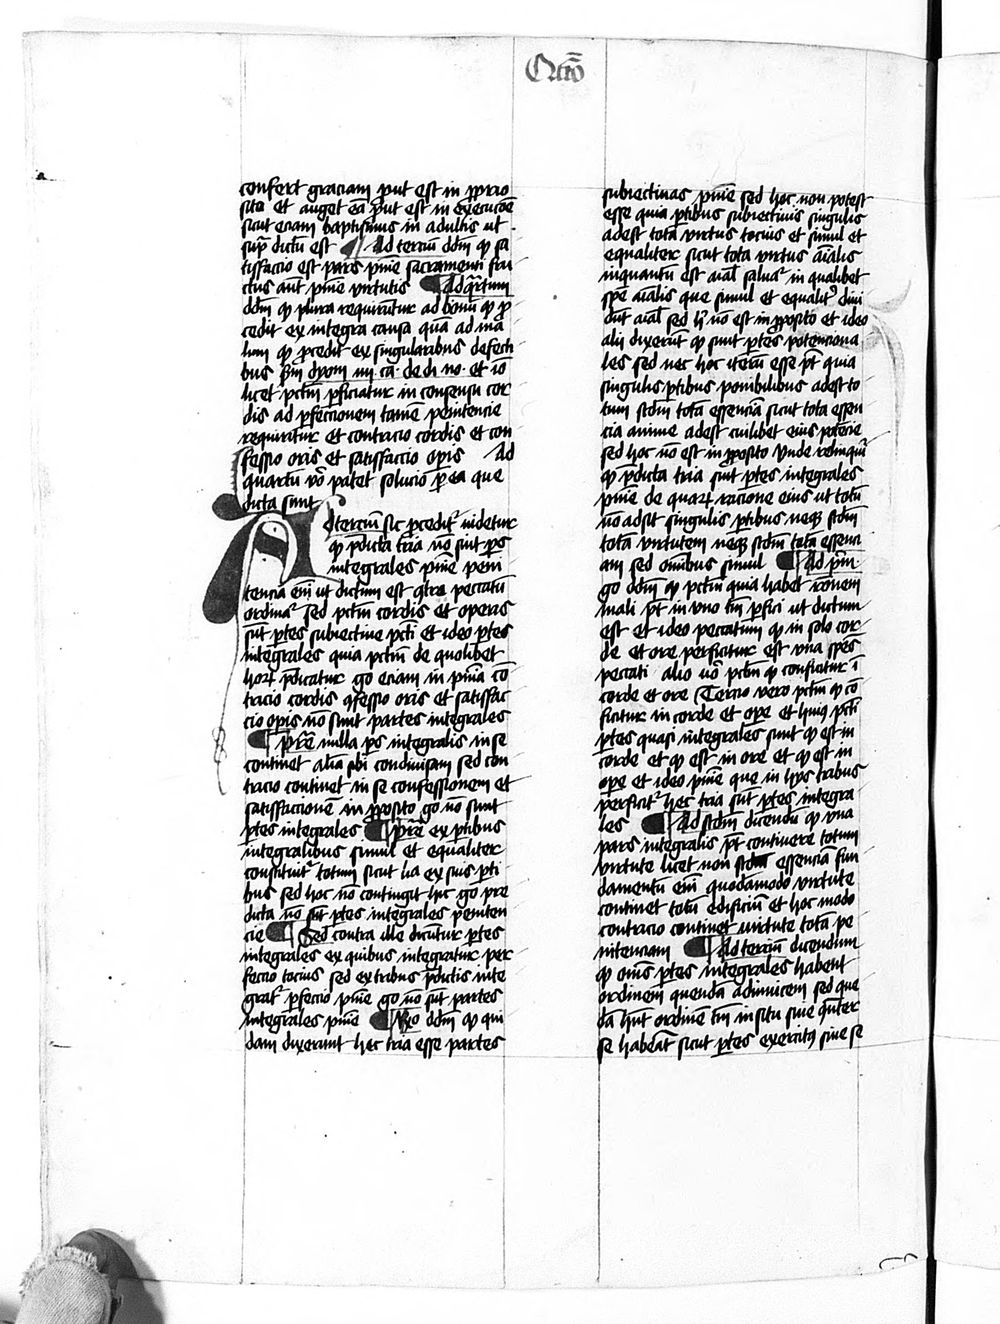 Questio
confert graciam prout est in proprio
sito et auget eā prout est in execucōe
sicut eciam baptismus in adultis ut
supra dictū est Ad terciū dd̄m qꝫ sa
tisfaccio est pars pn̄ie sacramenti fru
ctus aūt pn̄ie virtutis Ad quartum
dd̄m qꝫ plura requirūtur ad bonū qꝫ pro
cedit ex integra causa quā ad ma
lum qꝫ procedit ex singularibus defecti
bus sm̄ dyoni. iiij. ca. de di. no. et iō
licet pctm̄ perficiatur in consensu cor
dis ad perfectionem tamē penitencie
requiritur et contricio cordis et con
fessio oris et satisfaccio operis Ad
quartū vero patet solucio per ea que
dicta sunt
Ad tercium sic proceditur videtur
qꝫ predicta tria nō sunt partes
integrales pn̄ie peni
tencia enī ut dictum est contra peccatū
ordinatur sed pctm̄ cordis et operis
sūt partes subiectiue pcti et ideo partes
integrales quia pctm̄ de quolibet
horum predicatur go eciam in pn̄ia cō
tricio cordis confessio oris et satisfac
cio operis nō sunt partes integrales
preterea nulla pars integralis in se
continet aliā sibi condiuisam sed con
tricio continet in se confessionem et
satisfaccionē in proposito go nō sunt
partes integrales preterea ex partibus
integralibus simul et equaliter
constituitur totum sicut linea ex suis parti
bus sed hoc nō contingit hic go pre
dicta nō sūt partes integrales peniten
cie Sed contra ille dicūtur partes
integrales ex quibus integratur per
fectio tocius sed ex tribus predictis inte
gratur perfectio pn̄ie go nō sūt partes
integrales pn̄ie Rn̄o dd̄m qꝫ qui
dam dixerunt hec tria esse partes
subiectiuas pn̄ie sed hoc non potest
esse quia partibus subiectiuis singulis
adest tota virtus tocius et simul et
equaliter sicut tota virtus aīalis
inquantū est aīal saluatur in qualibet
specie aīalis que simul et equaliter diui
dūt aīal sed hoc nō est in proposito et ideo
alii dixerūt qꝫ sunt partes potencia
les sed nec hoc iterū esse potest quia
singulis partibus potencialibus adest to
tum secundum totā essenciā sicut tota essen
cia anime adest cuilibet eius potencie
sed hoc nō est in proposito vnde relinquitur
qꝫ predicta tria sunt partes integrales
pn̄ie de quarum racione eius ut totū
nō adsit singulis partibus neqꝫ secundum
totā virtutem neqꝫ secundum totā essenci
am sed omībus simul Ad prim
go dd̄m qꝫ pctm̄ quia habet racionem
mali potest in vno tm̄ perfici ut dictum
est et ideo peccatum qꝫ in solo cor
de et ore perficitur est vna species
peccati alio vero pctm̄ qꝫ conficitur ī
corde et ore Tercio vero pctm̄ qꝫ cō
ficitur in corde et ope et huius pcti
partes quasi integrales sunt qꝫ est in
corde et qꝫ est in ore et qꝫ est in
ope et ideo pn̄ie que in hijs tribus
perficitur hec tria sūt partes integra
les Ad secundum dicendū qꝫ vna
pars integralis potest continere totum
virtute licet non secundum essenciā fun
damentū enī quodammodo virtute
continet totū edificiū et hoc modo
contricio continet virtute totā pe
nitenciam Ad terciū dicendum
qꝫ omīs partes integrales habent
ordinem quendā adinuicem sed que
dā hn̄t ordinē tm̄ in situ siue consequenter
se habeāt sicut partes exercitus siue se